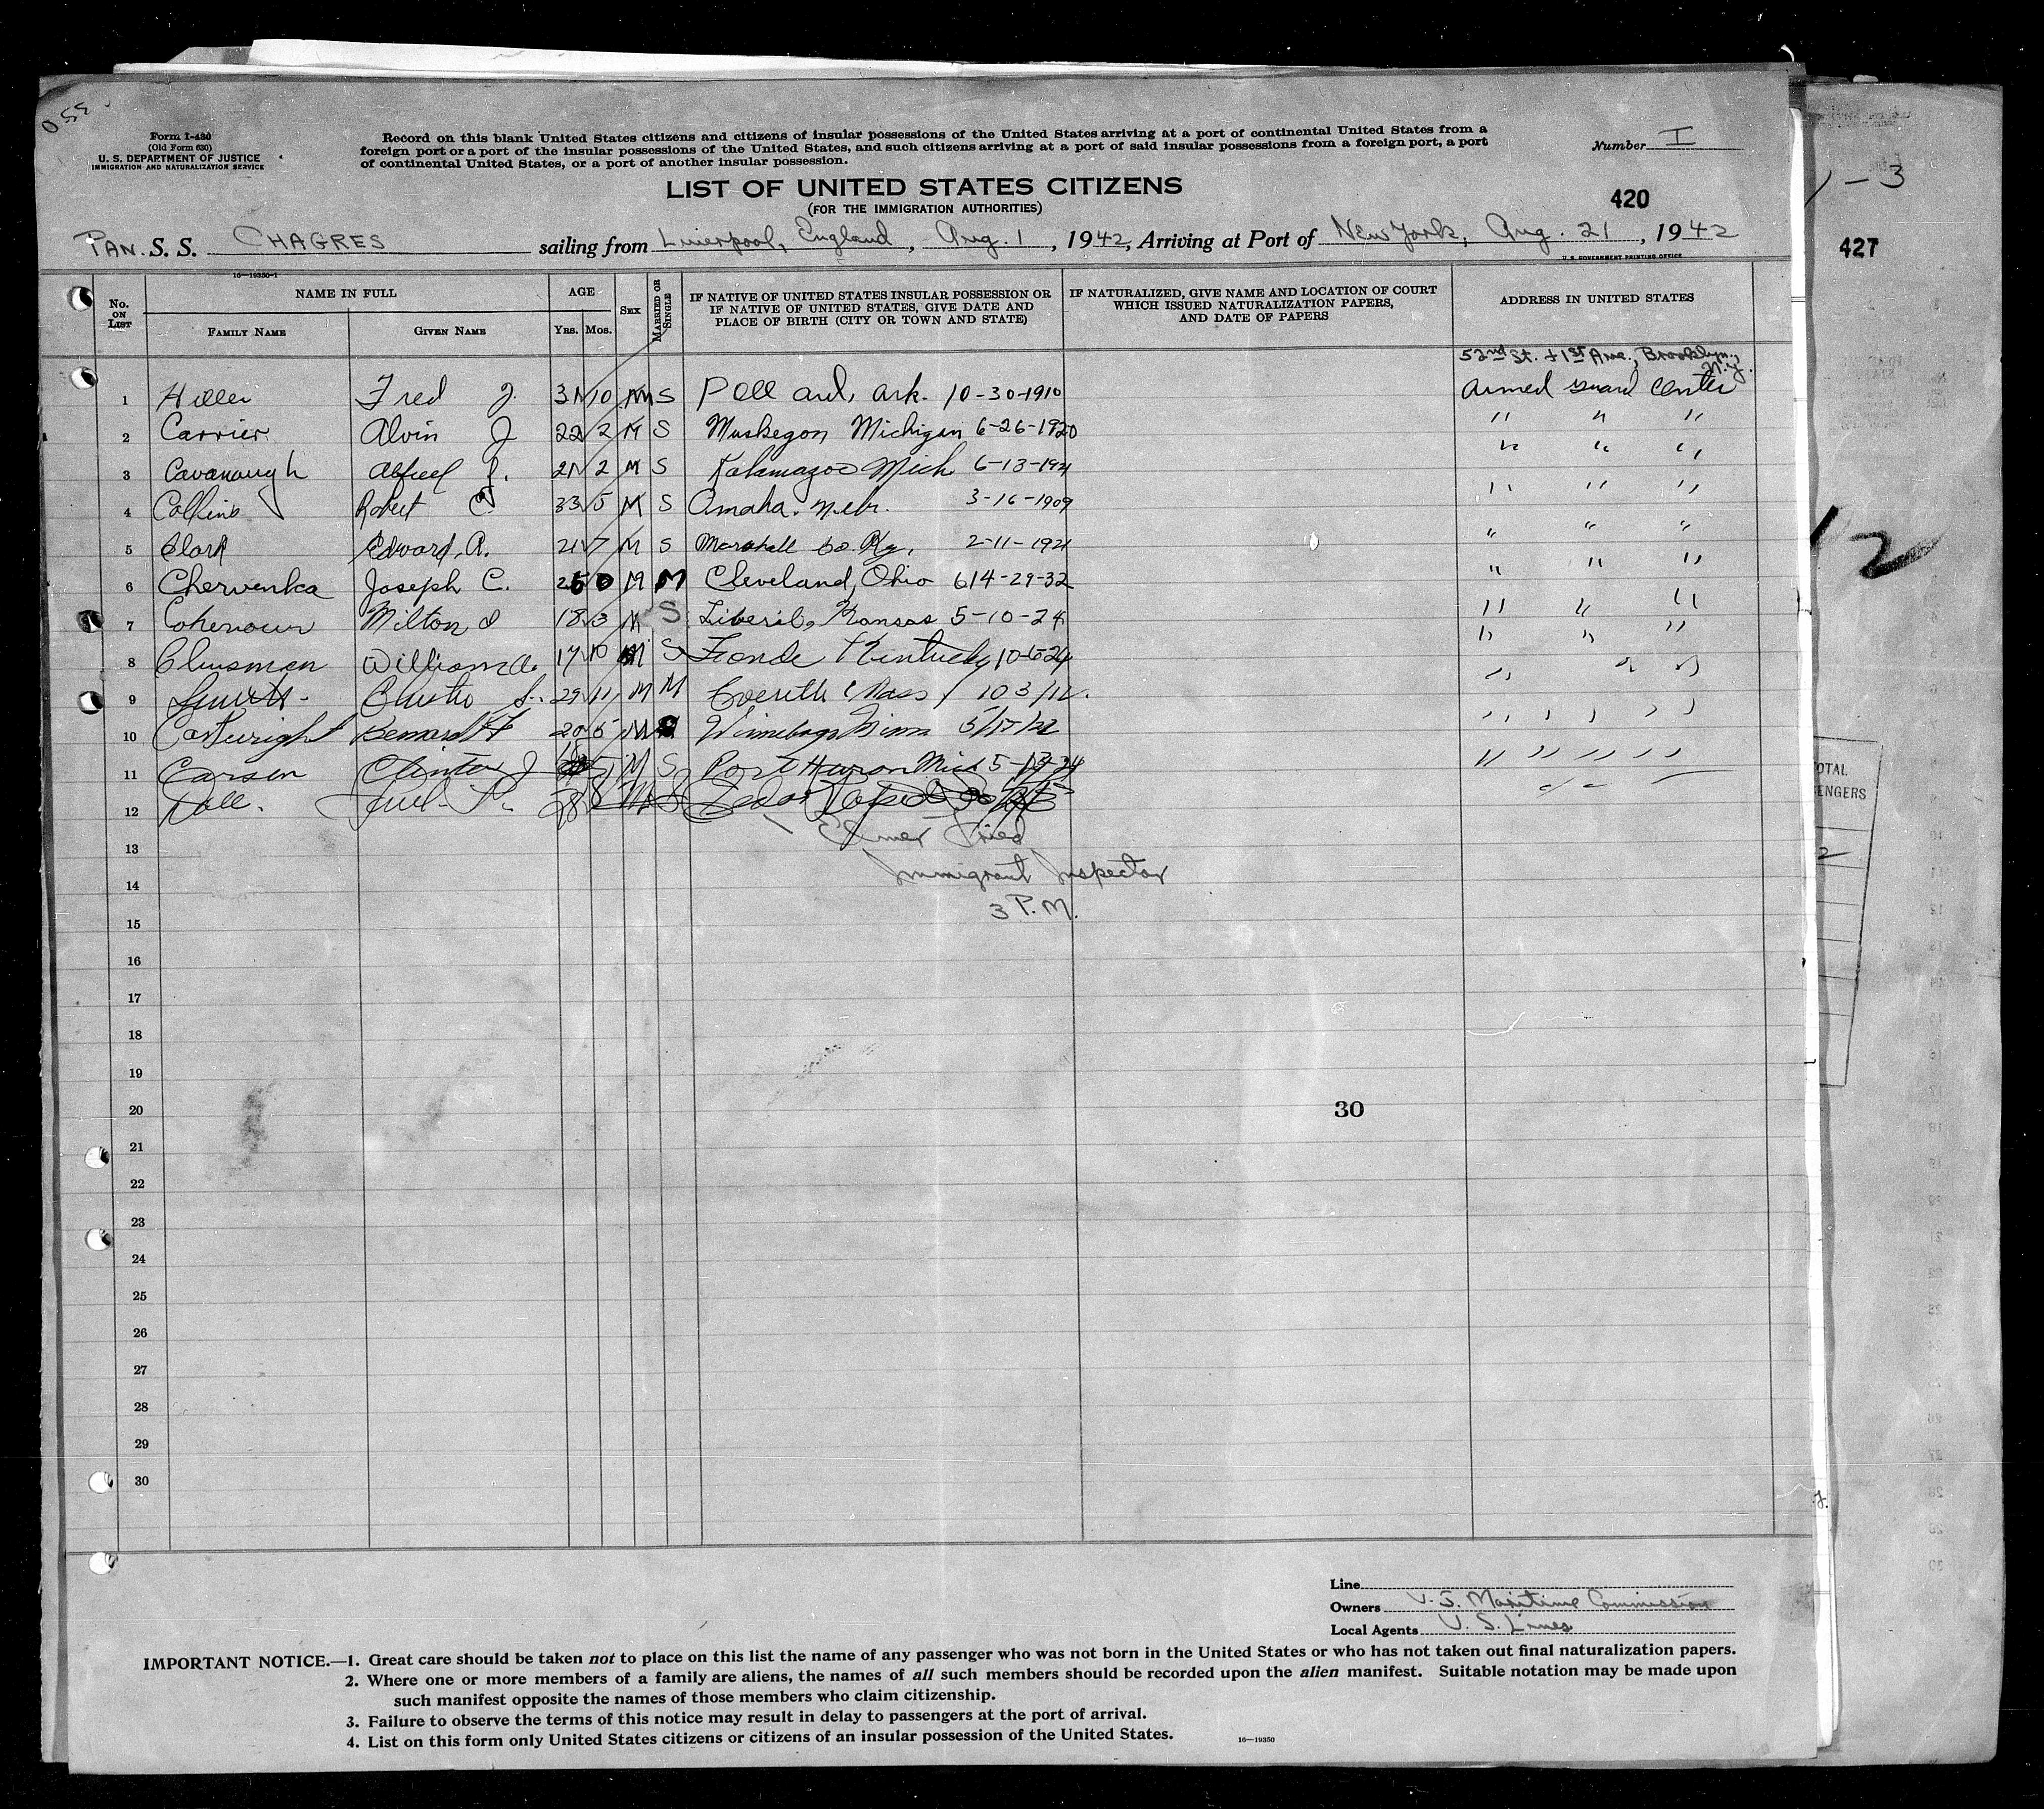 Form I-430
(Old Form 630)
U. S. DEPARTMENT OF JUSTICE
IMMIGRATION AND NATURALIZATION SERVICE
Record on this blank United States citizens and citizens of insular possessions of the United States arriving at a port of continental United States from a
foreign port or a port of the insular possessions of the United States, and such citizens arriving at a port of said insular possessions from a foreign port, a port
of continental United States, or a port of another insular possession.
Number I
LIST OF UNITED STATES CITIZENS
(FOR THE IMMIGRATION AUTHORITIES)
420
PAN. S. S. CHAGRES sailing from Liverpool, England, Aug. 1, 1942, Arriving at Port of New York, Aug. 21, 1942
U. S. GOVERNMENT PRINTING OFFICE
16—19350-1
1-3
427
No. ON LIST
NAME IN FULL
FAMILY NAME
GIVEN NAME
AGE
YRS. MOS.
SEX
MARRIED OR SINGLE
IF NATIVE OF UNITED STATES INSULAR POSSESSION OR
IF NATIVE OF UNITED STATES, GIVE DATE AND
PLACE OF BIRTH (CITY OR TOWN AND STATE)
IF NATURALIZED, GIVE NAME AND LOCATION OF COURT
WHICH ISSUED NATURALIZATION PAPERS,
AND DATE OF PAPERS
ADDRESS IN UNITED STATES
52nd St. + 1st Ave., Brooklyn, N.Y.
1 Fred J. 31 10 M S Ark. 10-30-1910 Armed Guard Center
2 Carrier Alvin J 22 2 M S Muskegon Michigan 6-26-1920 " " "
3 Cavanaugh Alfred J. 21 2 M S Kalamazoo Mich 6-13-1921 " " "
4 Collins Robert C. 33 5 M S Omaha. Nebr. 3-16-1909 " " "
5 Clark Edward, A. 21 7 M S Marshall Co. Ky. 2-11-1921 " " "
6 Chervenka Joseph C. 25 0 M M Cleveland, Ohio " " "
7 Cohenour Milton 18 3 M S Liberil, Kansas 5-10-24 " " "
8 Clusman William A. 17 10 M S Fronde Kentucky 10-6-24 " " "
9 29 11 M M Everett Mass 10 3/12 " " "
10 Cartwright Bernard F 20 5 M Winnebago Minn " " "
11 Carsen Clinton J 18 M S Port Huron Mich 5- " " "
12 28 8 M S Cedar Rapids " "
Elmer Fried
Immigrant Inspector
3 P.M.
13
14
15
16
17
18
19
20
30
21
22
23
24
25
26
27
28
29
30
12
OTAL
ENGERS
2
Line
Owners U. S. Maritime Commission
Local Agents U. S. Lines
IMPORTANT NOTICE.—1. Great care should be taken not to place on this list the name of any passenger who was not born in the United States or who has not taken out final naturalization papers.
2. Where one or more members of a family are aliens, the names of all such members should be recorded upon the alien manifest. Suitable notation may be made upon
such manifest opposite the names of those members who claim citizenship.
3. Failure to observe the terms of this notice may result in delay to passengers at the port of arrival.
4. List on this form only United States citizens or citizens of an insular possession of the United States.
16—19350